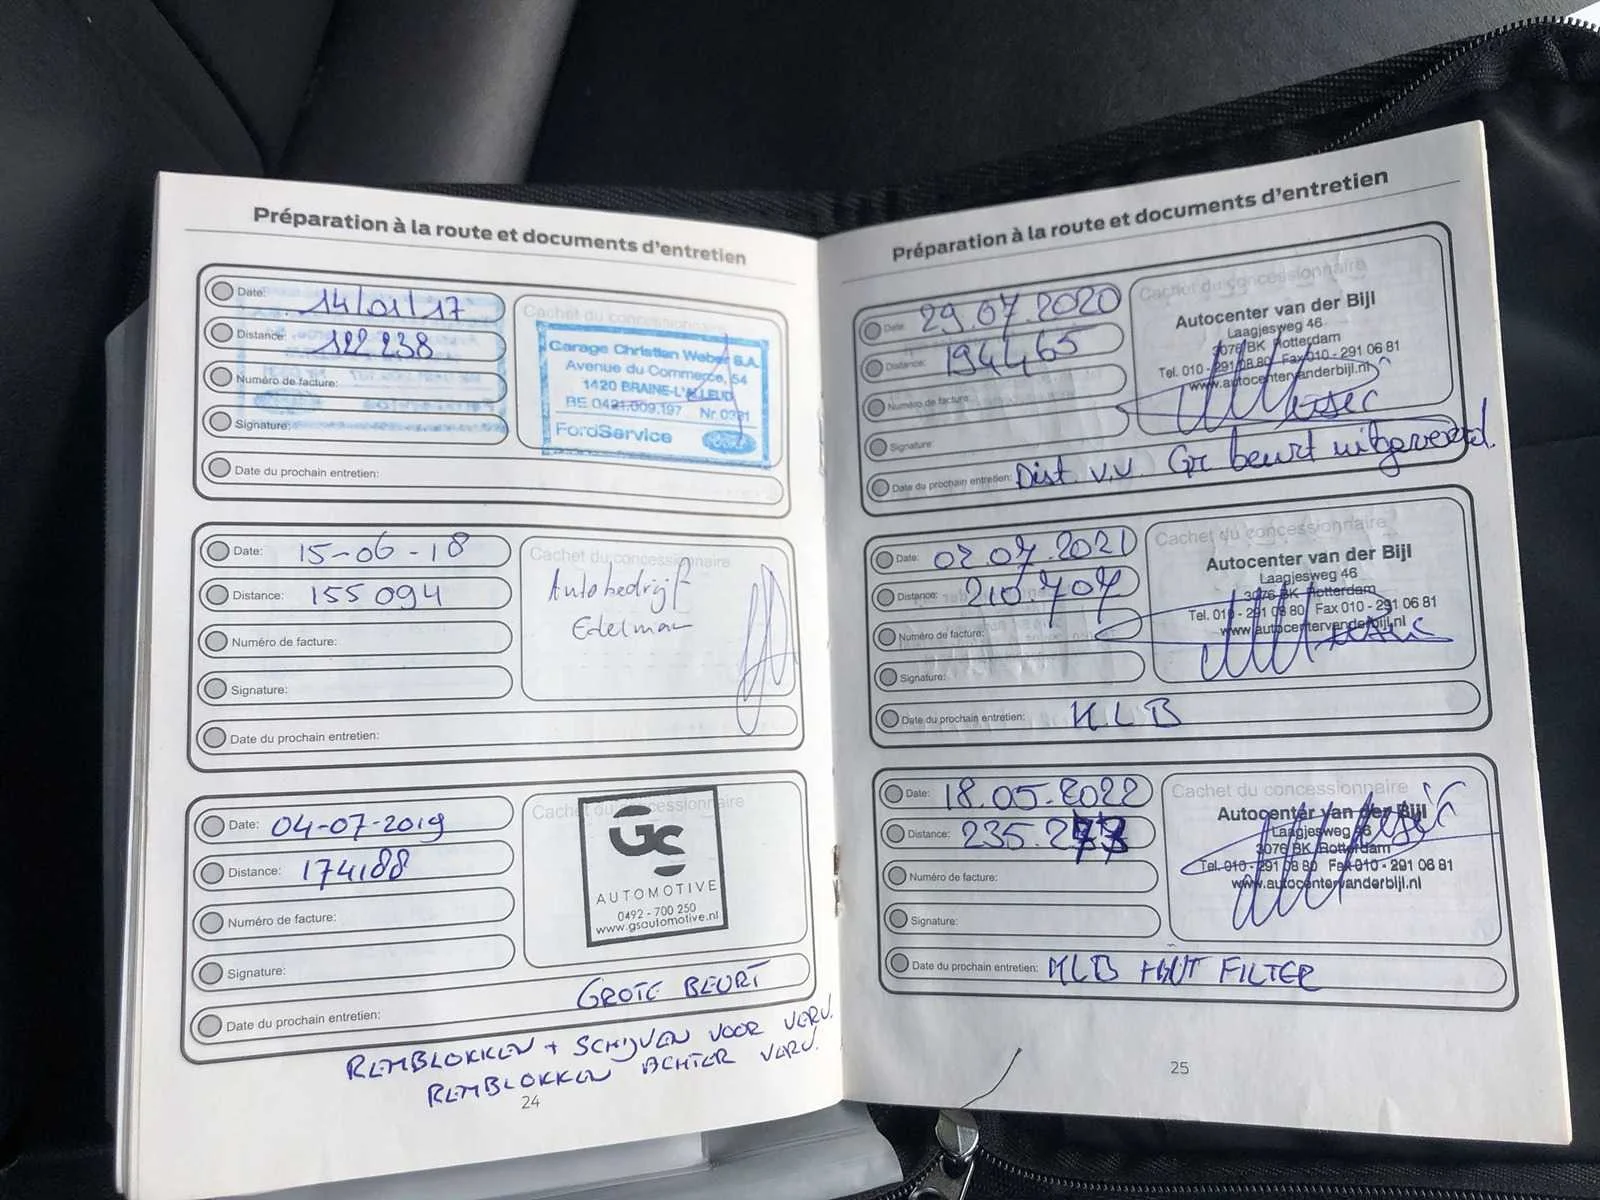 Préparation à la route et documents d'entretien
Date: 14/01/17
Distance: 122 238
Numéro de facture:
Signature:
Date du prochain entretien:
Cachet du concessionnaire
Garage Christian Weber S.A.
Avenue du Commerce, 54
1420 BRAINE-L'ALLEUD
BE 0421.009.197 Nr 0321
FordService
Ford
Date: 15-06-18
Distance: 155 094
Numéro de facture:
Signature:
Date du prochain entretien:
Cachet du concessionnaire
Autobedrijf
Edelman
Date: 04-07-2019
Distance: 174188
Numéro de facture:
Signature:
Date du prochain entretien:
Cachet du concessionnaire
GS
AUTOMOTIVE
0492 - 700 250
www.gsautomotive.nl
GROTE BEURT
REMBLOKKEN + SCHIJVEN VOOR VERV.
REMBLOKKEN ACHTER VERV.
24
Préparation à la route et documents d'entretien
Date: 29.07.2020
Distance: 194465
Numéro de facture:
Signature:
Date du prochain entretien: Dist. V.V. Gr beurt uitgevoerd.
Cachet du concessionnaire
Autocenter van der Bijl
Laagjesweg 46
3076 BK Rotterdam
Tel. 010 - 291 08 80 Fax 010 - 291 06 81
www.autocentervanderbijl.nl
Date: 02.07.2021
Distance: 210.707
Numéro de facture:
Signature:
Date du prochain entretien: KLB
Cachet du concessionnaire
Autocenter van der Bijl
Laagjesweg 46
3076 BK Rotterdam
Tel. 010 - 291 08 80 Fax 010 - 291 06 81
www.autocentervanderbijl.nl
Date: 18.05.2022
Distance: 235.2
Numéro de facture:
Signature:
Date du prochain entretien: KLB FILTER
Cachet du concessionnaire
Autocenter van der Bijl
Laagjesweg 46
3076 BK Rotterdam
Tel. 010 - 291 08 80 Fax 010 - 291 06 81
www.autocentervanderbijl.nl
25